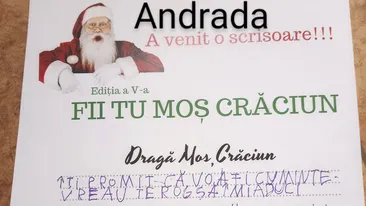 Andrada
A venit o scrisoare!!!
Ediția a V-a
FII TU MOȘ CRĂCIUN
Dragă Moș Crăciun
ÎȚI PROMIT CĂ VOI FI CUMINTE
VREAU TE ROG SĂ MI ADUCI